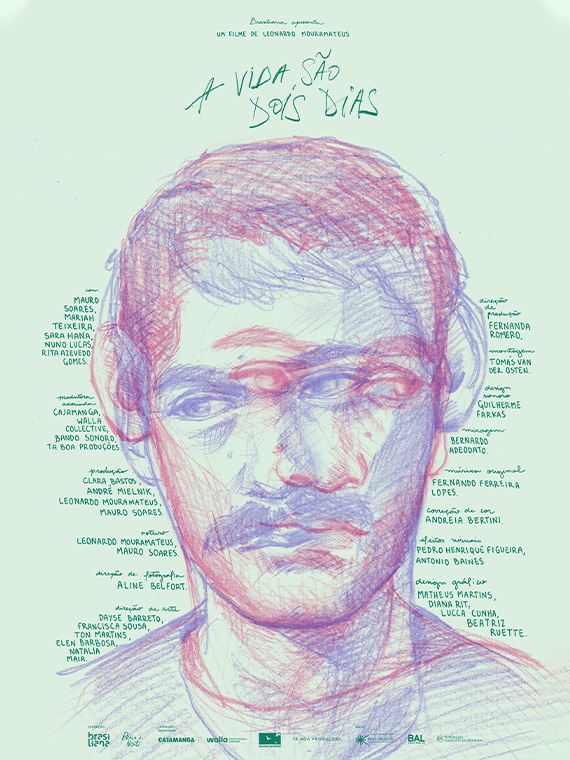 Brasiliana apresenta
UM FILME DE LEONARDO MOURAMATEUS
A VIDA SÃO
DOIS DIAS
com
MAURO
SOARES,
MARIAH
TEIXEIRA,
SARA HANA,
NUNO LUCAS,
RITA AZEVEDO
GOMES.
produtora
associada
CAJAMANGA,
WALLA
COLLECTIVE,
BANDO SONORO,
TA BOA PRODUÇÕES
produção
CLARA BASTOS,
ANDRÉ MIELNIK,
LEONARDO MOURAMATEUS,
MAURO SOARES.
roteiro
LEONARDO MOURAMATEUS,
MAURO SOARES.
direção de fotografia
ALINE BELFORT.
direção de arte
DAYSE BARRETO,
FRANCISCA SOUSA,
TON MARTINS,
ELEN BARBOSA,
NATALIA
MAIA.
direção
de
produção
FERNANDA
ROMERO,
montagem
TOMÁS VAN
DER OSTEN.
design
sonoro
GUILHERME
FARKAS
mixagem
BERNARDO
ADEODATO.
música original
FERNANDO FERREIRA
LOPES.
correção de cor
ANDREIA BERTINI.
efeitos visuais
PEDRO HENRIQUE FIGUEIRA,
ANTONIO BAINES
design gráfico
MATHEUS MARTINS,
DIANA RIT,
LUCCA CUNHA,
BEATRIZ
RUETTE.
brasiliana
CAJAMANGA
walla
TÁ BOA PRODUÇÕES
BAL